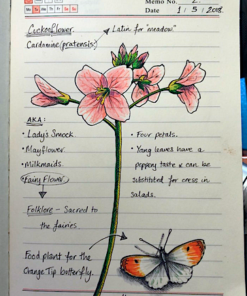 Memo No. 2.
Date 1 / 5 / 2018
Cuckooflower.
Latin for "meadow"
Cardamine (pratensis)
AKA:
• Lady's Smock
• Mayflower
• Milkmaids
• Fairy Flower
Folklore - Sacred to
the fairies
Food plant for the
Orange Tip butterfly.
• Four petals.
• Yong leaves have a
peppery taste & can be
substituted for cress in
salads.